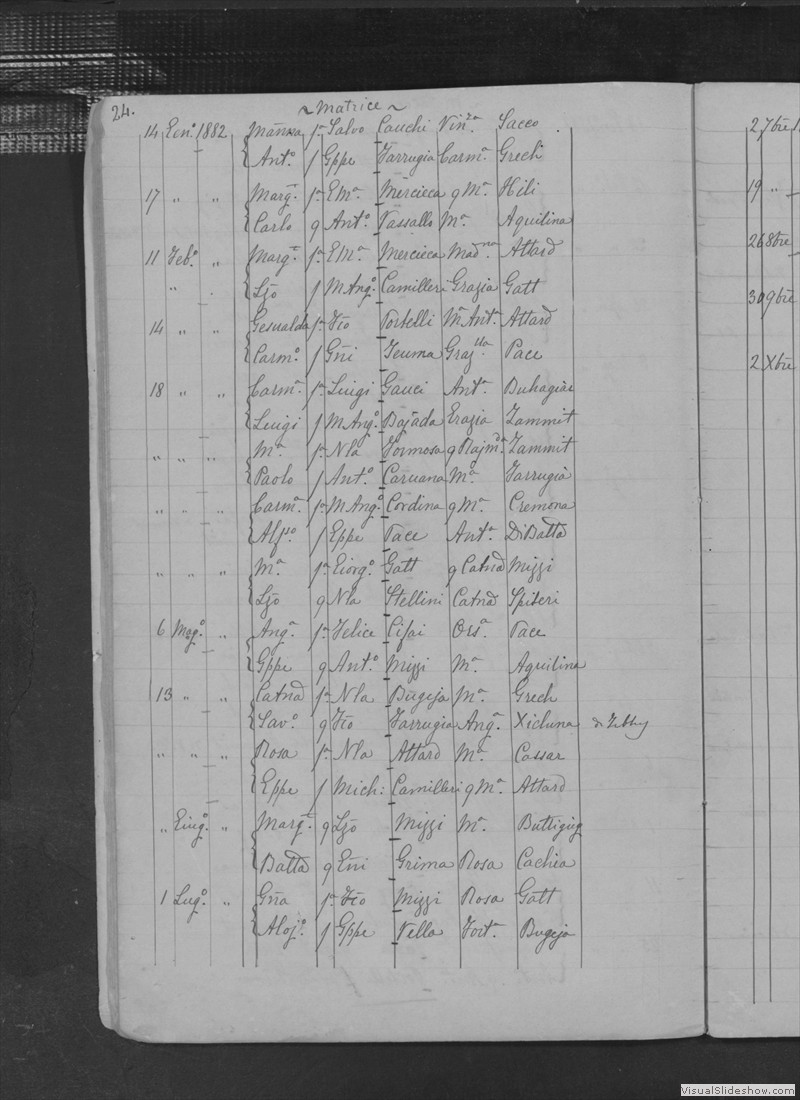 24.
~ Matrice ~
14 Enn. 1882 Mânna fa Salvo Cauchi Vin.za Sacco
Ant.o f Gppe Farrugia Carm.a Grech
17 " " Marg.ta fa E.Ma Mercieca q M.a Hili
Carlo q Ant.o Vassallo M.a Aquilina
11 Feb.o " Marg.ta fa E.Ma Mercieca Mad.na Attard
" . Ljo f M Ang.o Camilleri Grazia Gatt
14 " " Gesualda fa Fco Portelli M.a Ant.a Attard
Carm.o f Gñi Teuma Graz.lla Pace
18 " " Carm.a fa Luigi Gauci Ant.a Buhagiar
Luigi f M Ang.o Bajada Grazia Zammit
" " " M.a fa Nla Formosa q Rajm.da Zammit
Paolo f Ant.o Caruana M.a Farrugia
" " " Carm.a fa M Ang.o Cordina q M.a Cremona
Alf.so f Gppe Pace Ant.a DiBatta
" " " M.a fa Giorg.o Gatt q Catna Mizzi
Ljo q Nla Stellini Catna Spiteri
6 Mag.o " Ang.a fa Felice Cifai Ors.a Pace
Gppe q Ant.o Mizzi M.a Aquilina
13 " " Catna fa Nla Bugeja M.a Grech
Sav.o q Fco Farrugia Ang.a Xicluna d Zebbug
" " " Rosa fa Nla Attard M.a Cassar
Gppe f Mich: Camilleri q M.a Attard
" Giug.o " Marg.ta q Ljo Mizzi M.a Buttigieg
Batta q Gñi Grima Rosa Cachia
1 Lug.o " Gña fa Fco Mizzi Rosa Gatt
Aloj.o f Gppe Vella Fort.a Bugeja
2 7bre 1
19 "
26 8bre
30 9bre
2 Xbre
VisualSlideshow.com